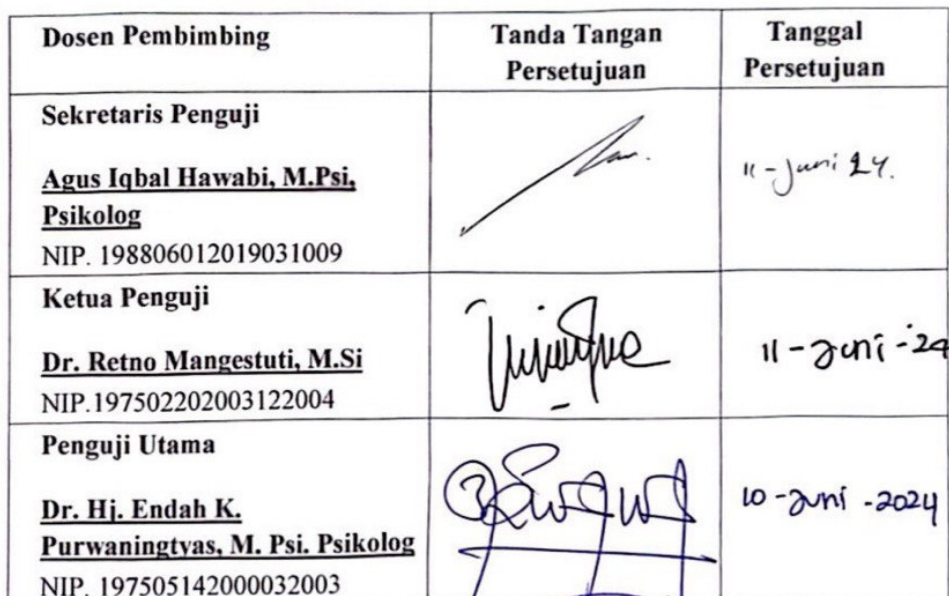 Dosen Pembimbing
Tanda Tangan
Persetujuan
Tanggal
Persetujuan
Sekretaris Penguji
Agus Iqbal Hawabi, M.Psi,
Psikolog
NIP. 198806012019031009
11 - Juni 24.
Ketua Penguji
Dr. Retno Mangestuti, M.Si
NIP.197502202003122004
11 - Juni - 24
Penguji Utama
Dr. Hj. Endah K.
Purwaningtyas, M. Psi. Psikolog
NIP. 197505142000032003
10 - Juni - 2024